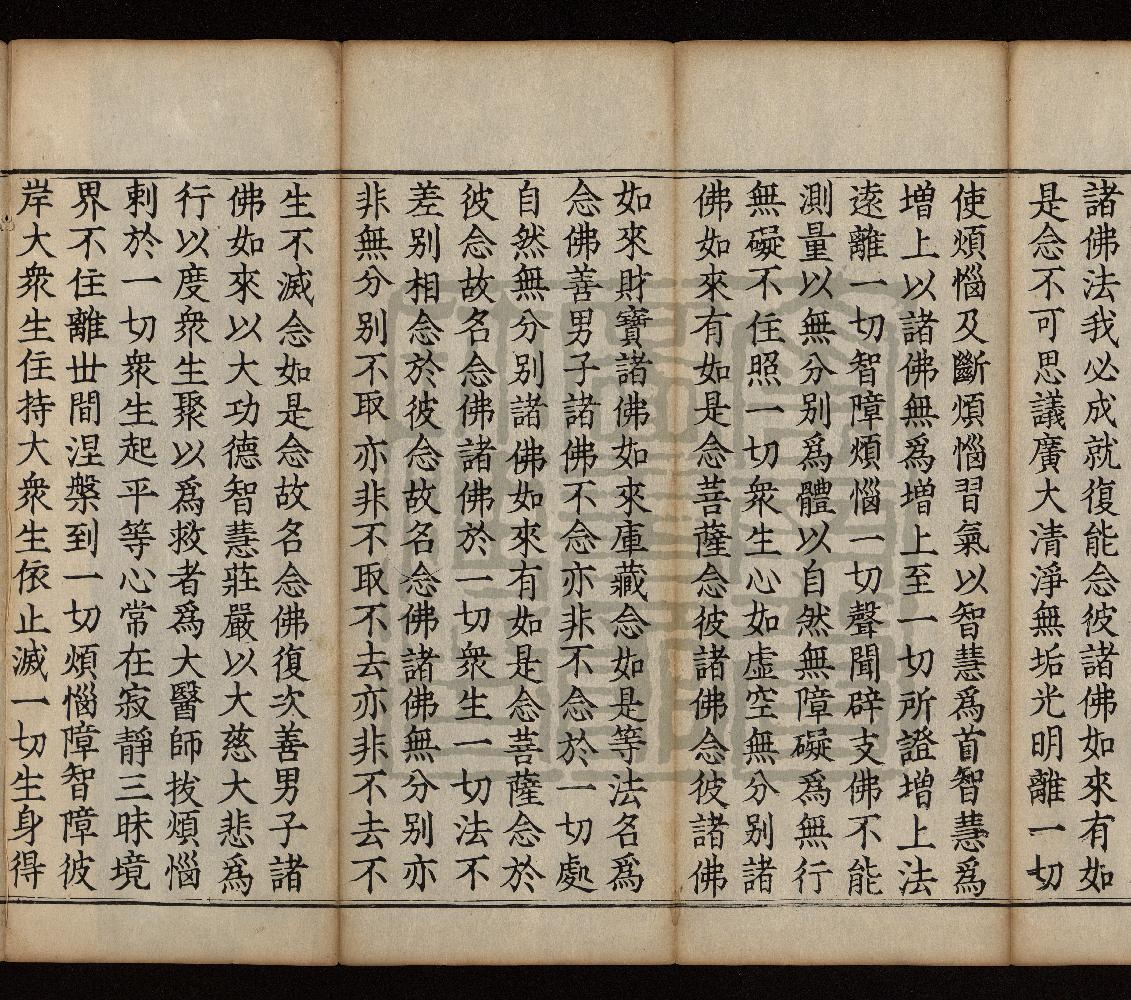 諸佛法我必成就復能念彼諸佛如來有如
是念不可思議廣大清淨無垢光明離一切
使煩惱及斷煩惱習氣以智慧爲首智慧爲
增上以諸佛無爲增上至一切所證增上法
遠離一切智障煩惱一切聲聞辟支佛不能
測量以無分別爲體以自然無障礙爲無行
無礙不住照一切衆生心如虛空無分別諸
佛如來有如是念菩薩念彼諸佛念彼諸佛
如來財寶諸佛如來庫藏念如是等法名爲
念佛善男子諸佛不念亦非不念於一切處
自然無分別諸佛如來有如是念菩薩念於
彼念故名念佛諸佛於一切衆生一切法不
差別相念於彼念故名念佛諸佛無分別亦
非無分別不取亦非不取不去亦非不去不
生不滅念如是念故名念佛復次善男子諸
佛如來以大功德智慧莊嚴以大慈大悲爲
行以度衆生聚以爲救者爲大醫師拔煩惱
刺於一切衆生起平等心常在寂靜三昧境
界不住離世間涅槃到一切煩惱障智障彼
岸大衆生住持大衆生依止滅一切生身得